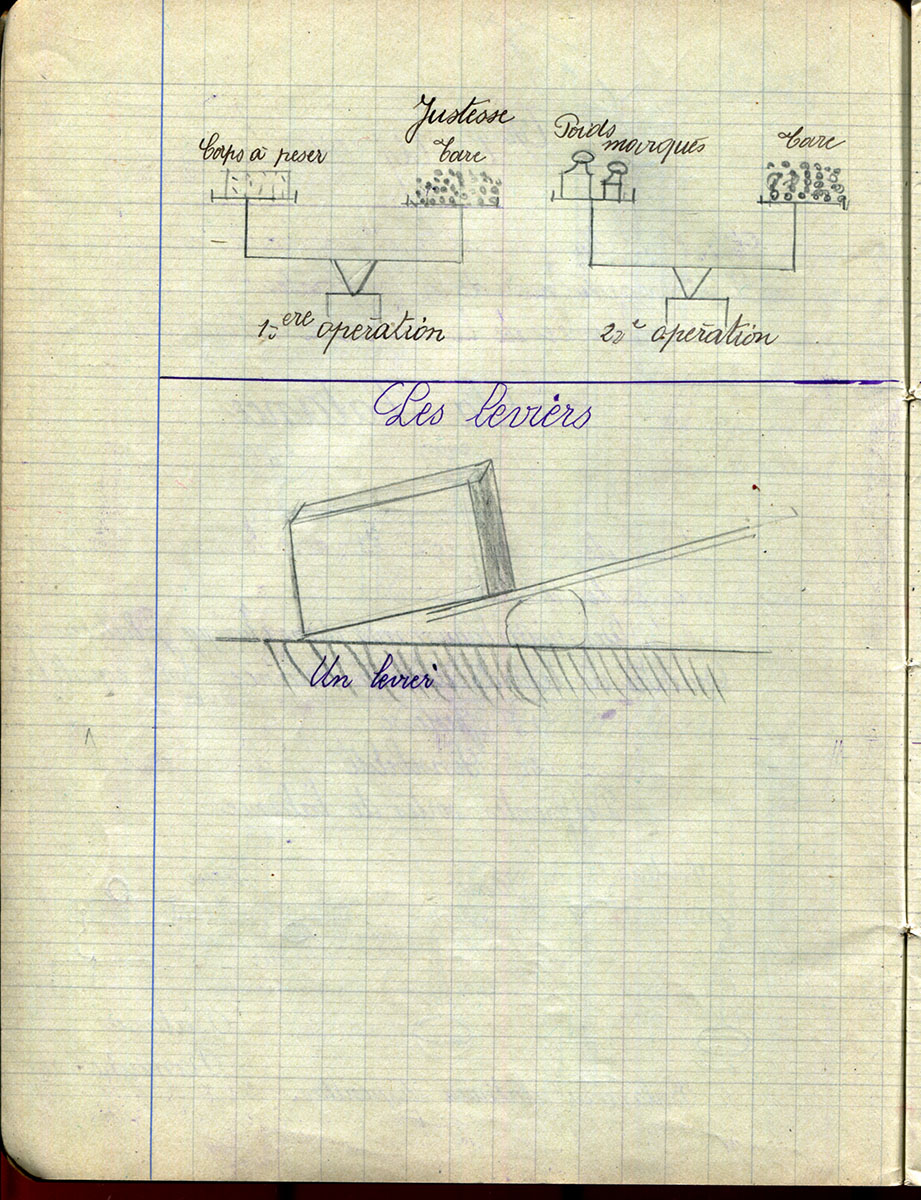 Justesse
Corps à peser
Tare
Poids
marqués
Tare
1ère opération
2è opération
Les leviers
Un levier